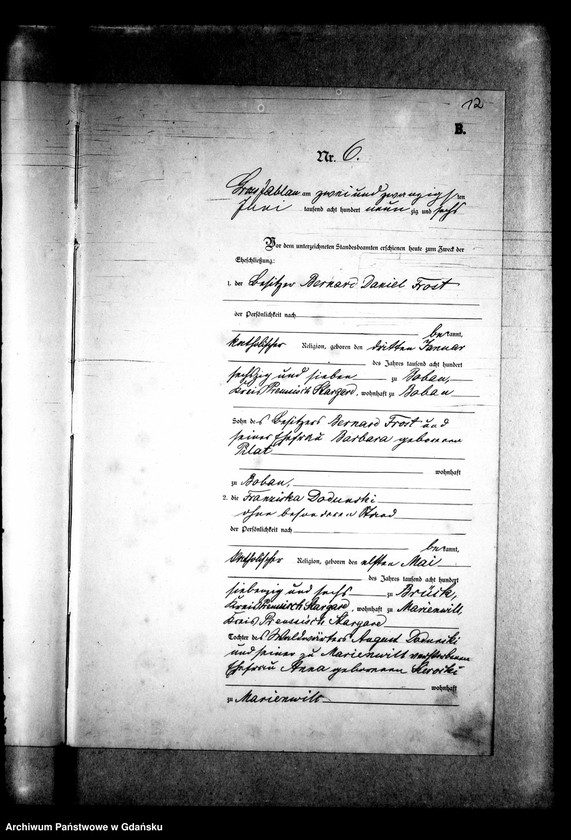 12
B.
Nr. 6.
am zwei und zwanzigsten
Juni tausend acht hundert neun zig und sechs
Vor dem unterzeichneten Standesbeamten erschienen heute zum Zweck der
Eheschließung:
1. der Besitzer Bernard Daniel Frost
der Persönlichkeit nach
be kannt,
katholischer Religion, geboren den dritten Januar
des Jahres tausend acht hundert
sechzig und sieben zu Boban,
Kreis Preussisch Stargard, wohnhaft zu Boban
Sohn des Besitzers Bernard Frost und
seiner Ehefrau Barbara geborenen
Pilat
wohnhaft
zu Boban,
2. die Franziska Dodunski
ohne besonderen Stand
der Persönlichkeit nach
be kannt,
katholischer Religion, geboren den elften Mai
des Jahres tausend acht hundert
siebenzig und sechs zu Brück,
Kreis Preussisch Stargard, wohnhaft zu Marienwill
Kreis Preussisch Stargard
Tochter des Waldwärters August Dodunski
und seiner zu Marienwill verstorbenen
Ehefrau Anna geborenen
wohnhaft
zu Marienwill
Archiwum Państwowe w Gdańsku